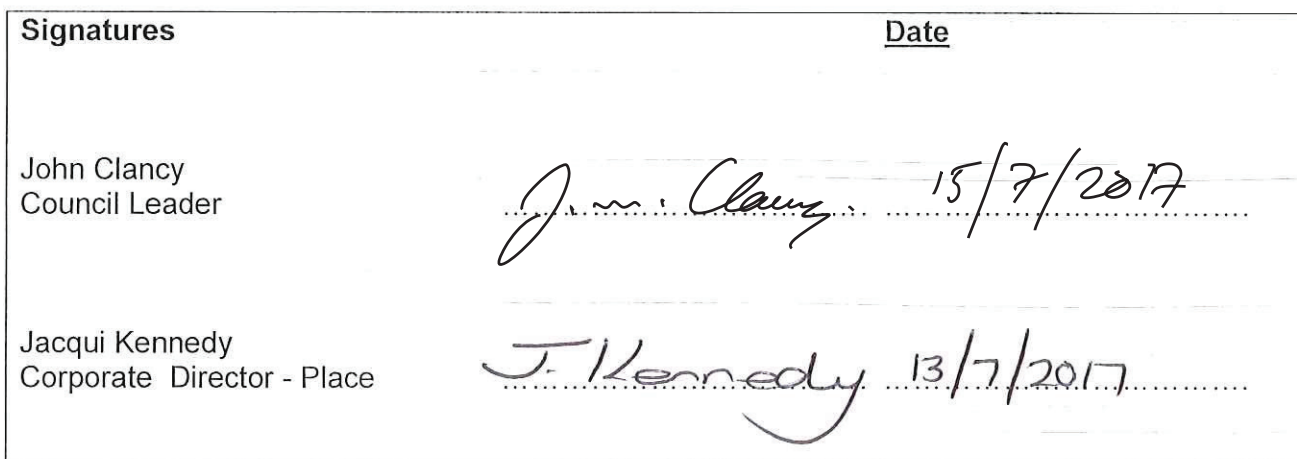 Signatures Date
John Clancy
Council Leader J. m. Clancy. 15/7/2017
Jacqui Kennedy
Corporate Director - Place J. Kennedy 13/7/2017